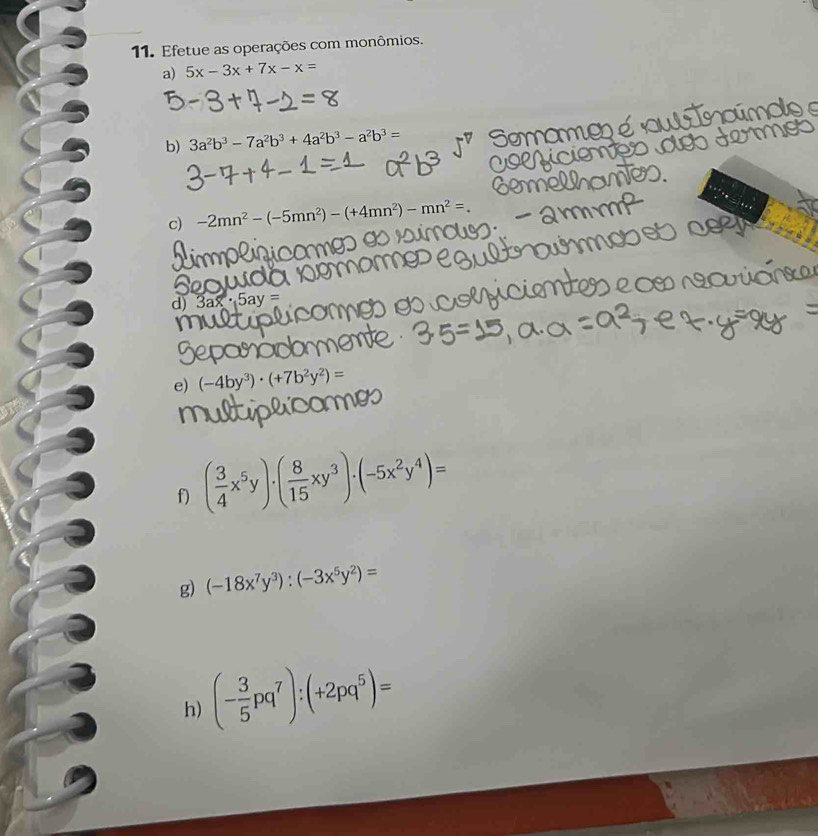 11. Efetue as operações com monômios.
a) 5x − 3x + 7x − x =
5-3+7-1=8
b) 3a²b³ − 7a²b³ + 4a²b³ − a²b³ =
3-7+4-1=1 a²b³ Somamos é
coeficientes dos termos
semelhantes.
c) −2mn² − (−5mn²) − (+4mn²) − mn² = . -2mn²
Simplificamos os sinais.
Seguida somamos e
d) 3ax · 5ay =
multiplicamos os coeficientes e as
Separadamente. 3.5=15, a.a=a², e x.y=xy =
e) (−4by³) · (+7b²y²) =
multiplicamos
f) (3/4 x⁵y) · (8/15 xy³) · (−5x²y⁴) =
g) (−18x⁷y³) : (−3x⁵y²) =
h) (−3/5 pq⁷) : (+2pq⁵) =